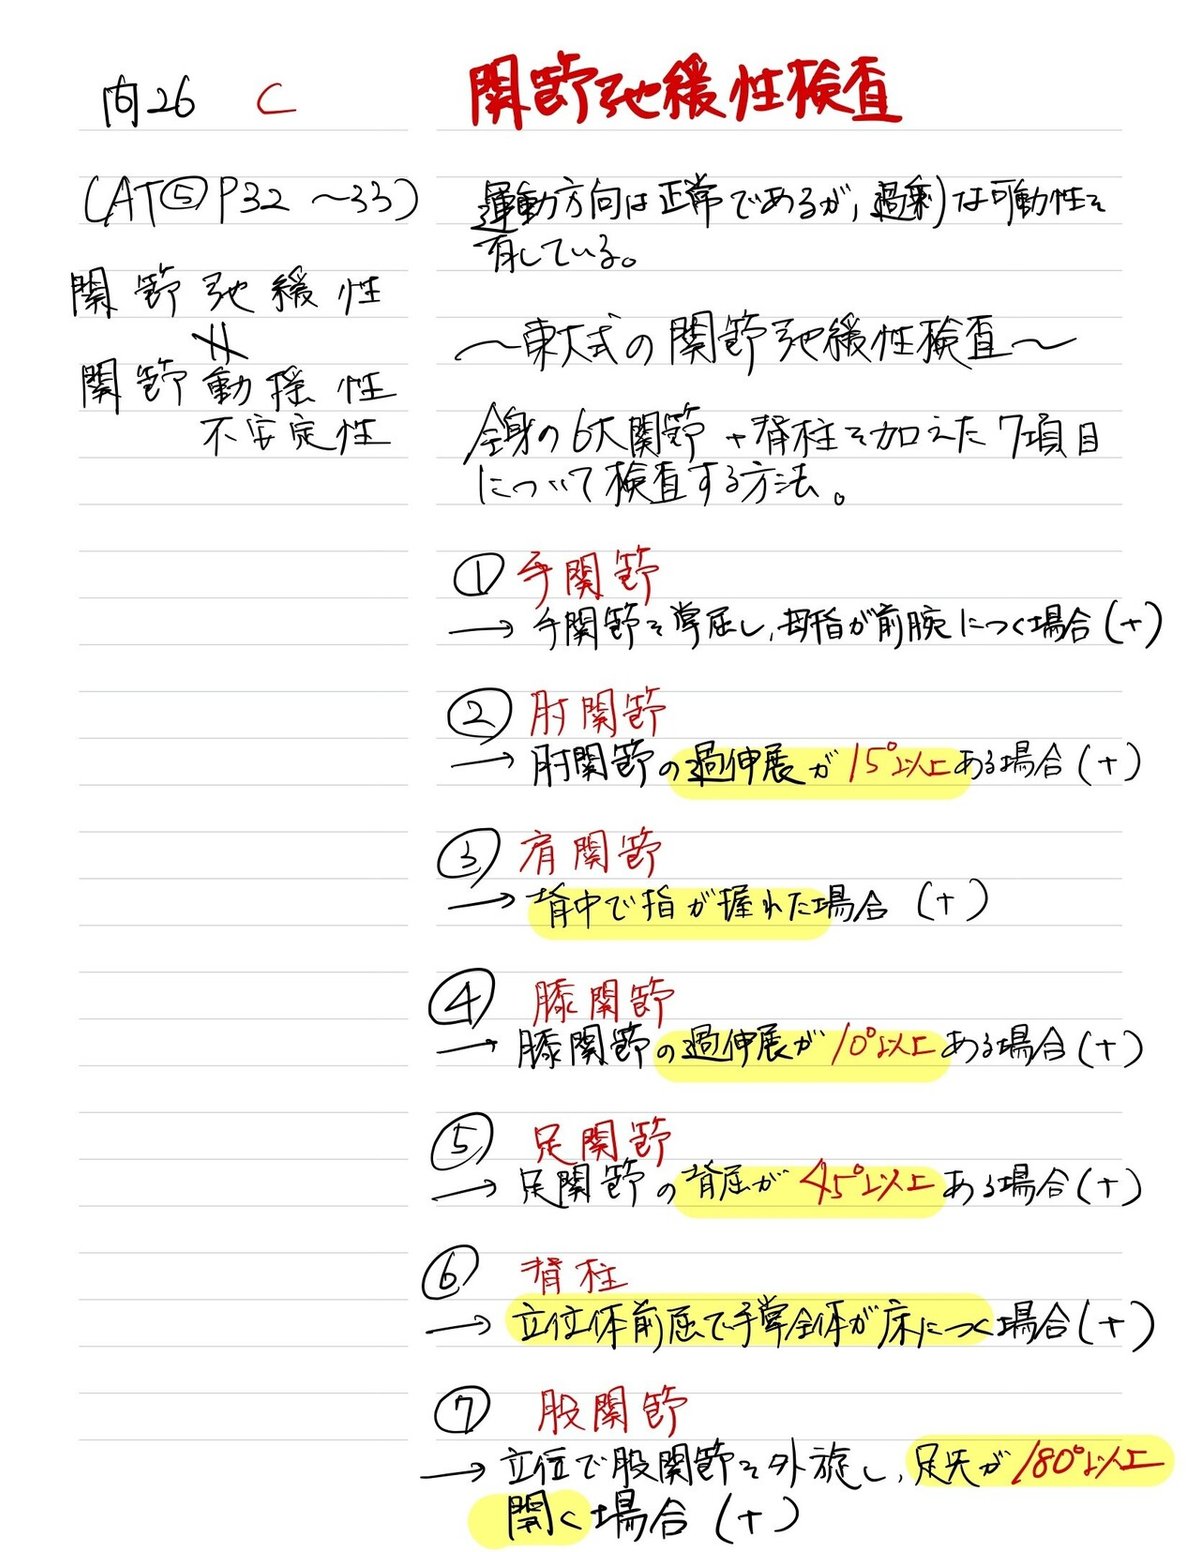 問26 C
(AT⑤P32 〜33)
関節弛緩性
≠
関節動揺性
不安定性
関節弛緩性検査
運動方向は正常であるが、過剰な可動性を
有している。
〜東大式の関節弛緩性検査〜
全身の6大関節+脊柱を加えた7項目
について検査する方法。
① 手関節
→ 手関節を掌屈し、母指が前腕につく場合(+)
② 肘関節
→ 肘関節の過伸展が15°以上ある場合(+)
③ 肩関節
→ 背中で指が握れた場合 (+)
④ 膝関節
→ 膝関節の過伸展が10°以上ある場合(+)
⑤ 足関節
→ 足関節の背屈が45°以上ある場合(+)
⑥ 脊柱
→ 立位体前屈で手掌全体が床につく場合(+)
⑦ 股関節
→ 立位で股関節を外旋し、足先が180°以上
開く場合 (+)